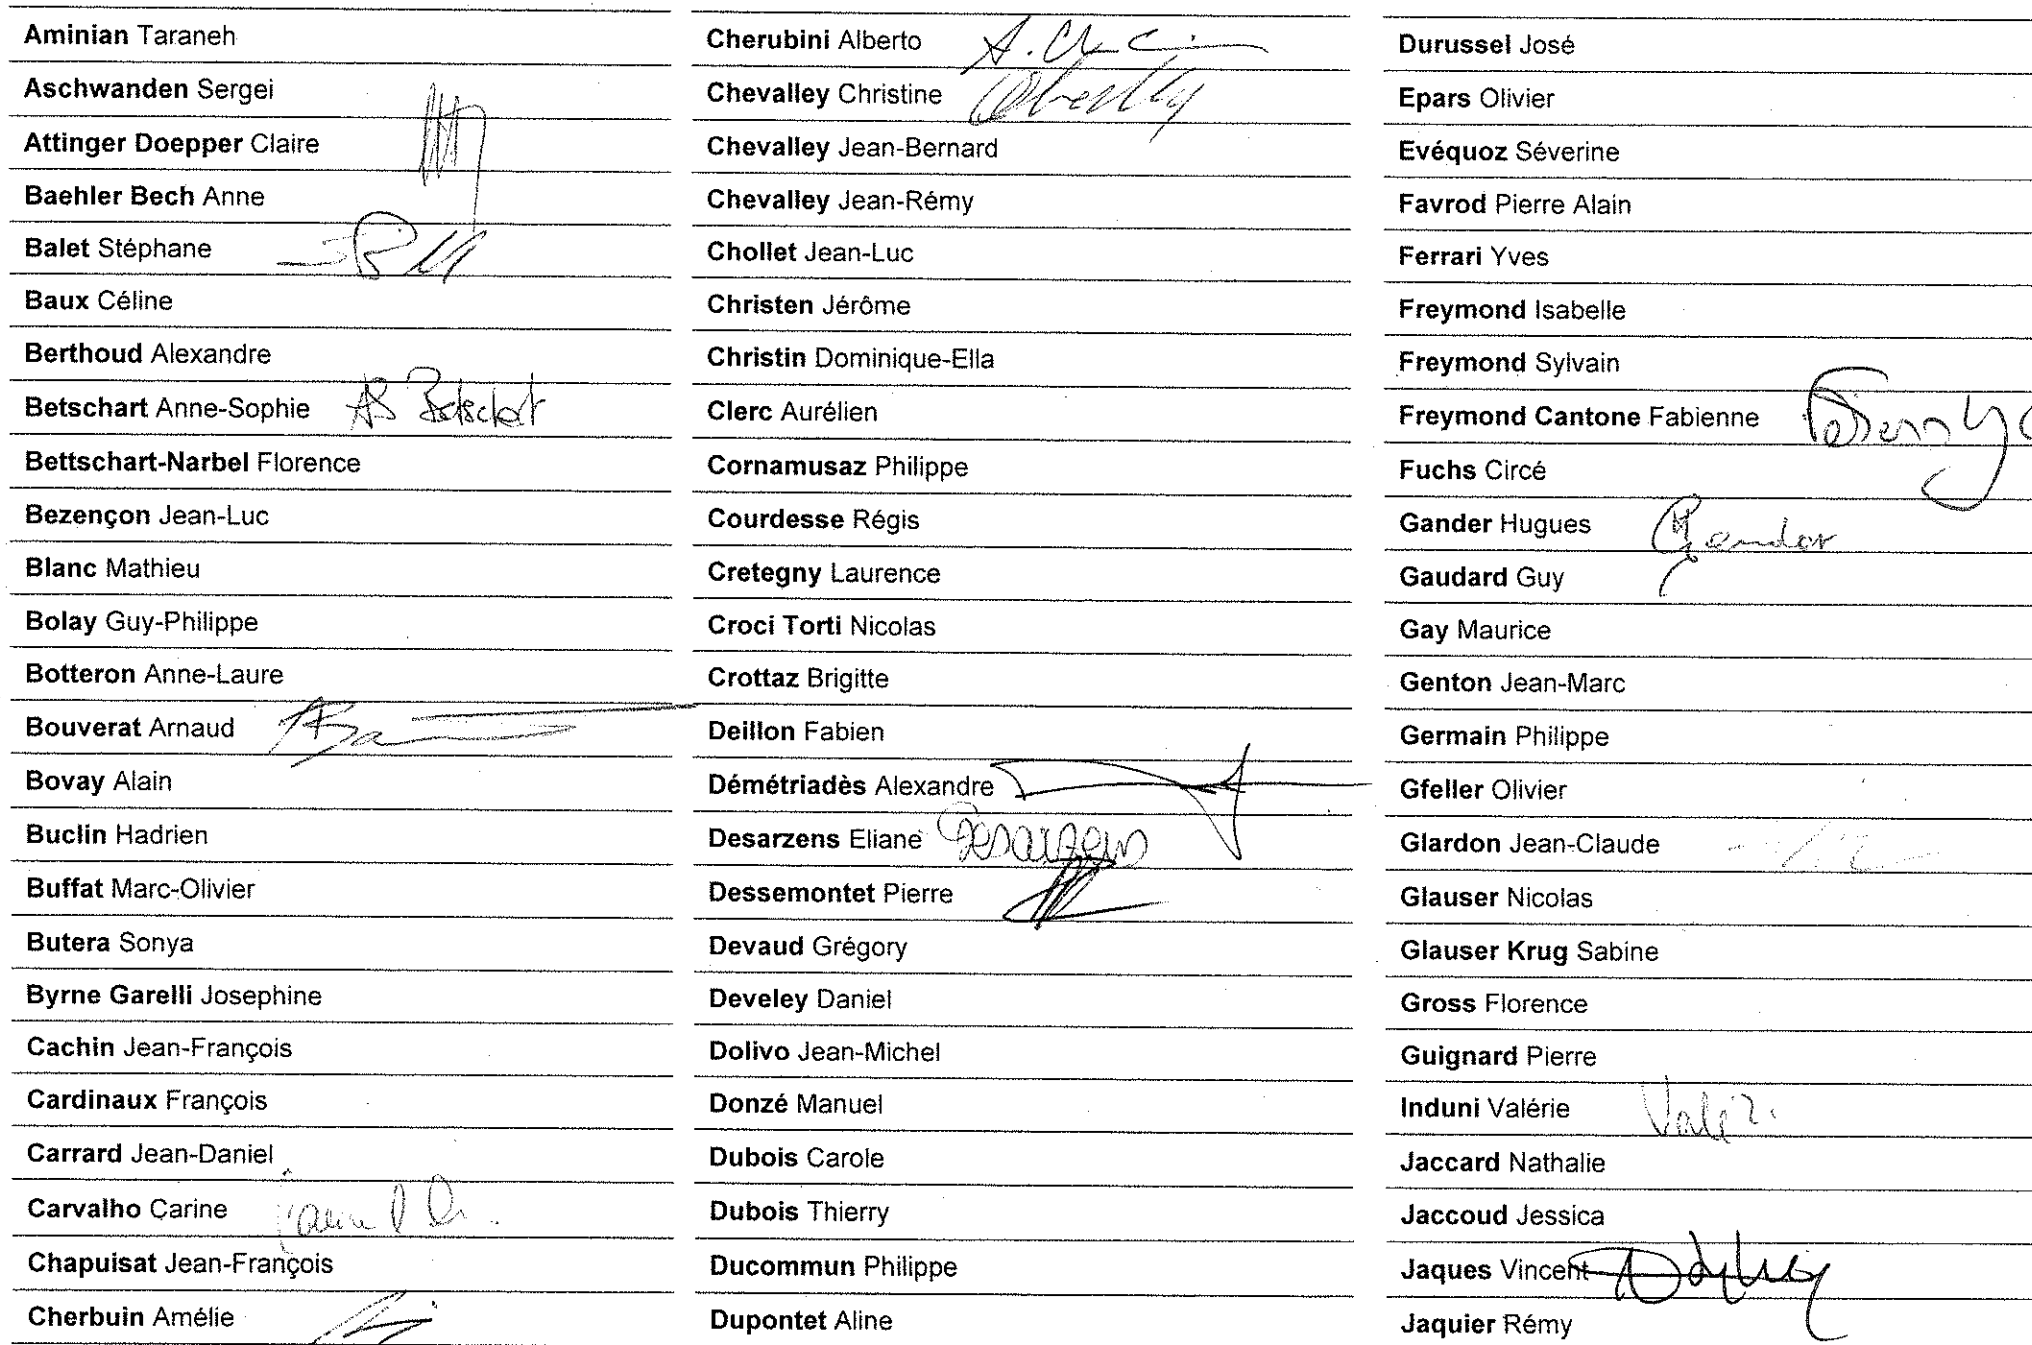 Aminian Taraneh
Aschwanden Sergei
Attinger Doepper Claire
Baehler Bech Anne
Balet Stéphane
Baux Céline
Berthoud Alexandre
Betschart Anne-Sophie AS Betschart
Bettschart-Narbel Florence
Bezençon Jean-Luc
Blanc Mathieu
Bolay Guy-Philippe
Botteron Anne-Laure
Bouverat Arnaud
Bovay Alain
Buclin Hadrien
Buffat Marc-Olivier
Butera Sonya
Byrne Garelli Josephine
Cachin Jean-François
Cardinaux François
Carrard Jean-Daniel
Carvalho Carine
Chapuisat Jean-François
Cherbuin Amélie
Cherubini Alberto
Chevalley Christine
Chevalley Jean-Bernard
Chevalley Jean-Rémy
Chollet Jean-Luc
Christen Jérôme
Christin Dominique-Ella
Clerc Aurélien
Cornamusaz Philippe
Courdesse Régis
Cretegny Laurence
Croci Torti Nicolas
Crottaz Brigitte
Deillon Fabien
Démétriadès Alexandre
Desarzens Eliane Desarzens
Dessemontet Pierre
Devaud Grégory
Develey Daniel
Dolivo Jean-Michel
Donzé Manuel
Dubois Carole
Dubois Thierry
Ducommun Philippe
Dupontet Aline
Durussel José
Epars Olivier
Evéquoz Séverine
Favrod Pierre Alain
Ferrari Yves
Freymond Isabelle
Freymond Sylvain
Freymond Cantone Fabienne
Fuchs Circé
Gander Hugues Gander
Gaudard Guy
Gay Maurice
Genton Jean-Marc
Germain Philippe
Gfeller Olivier
Glardon Jean-Claude
Glauser Nicolas
Glauser Krug Sabine
Gross Florence
Guignard Pierre
Induni Valérie
Jaccard Nathalie
Jaccoud Jessica
Jaques Vincent
Jaquier Rémy